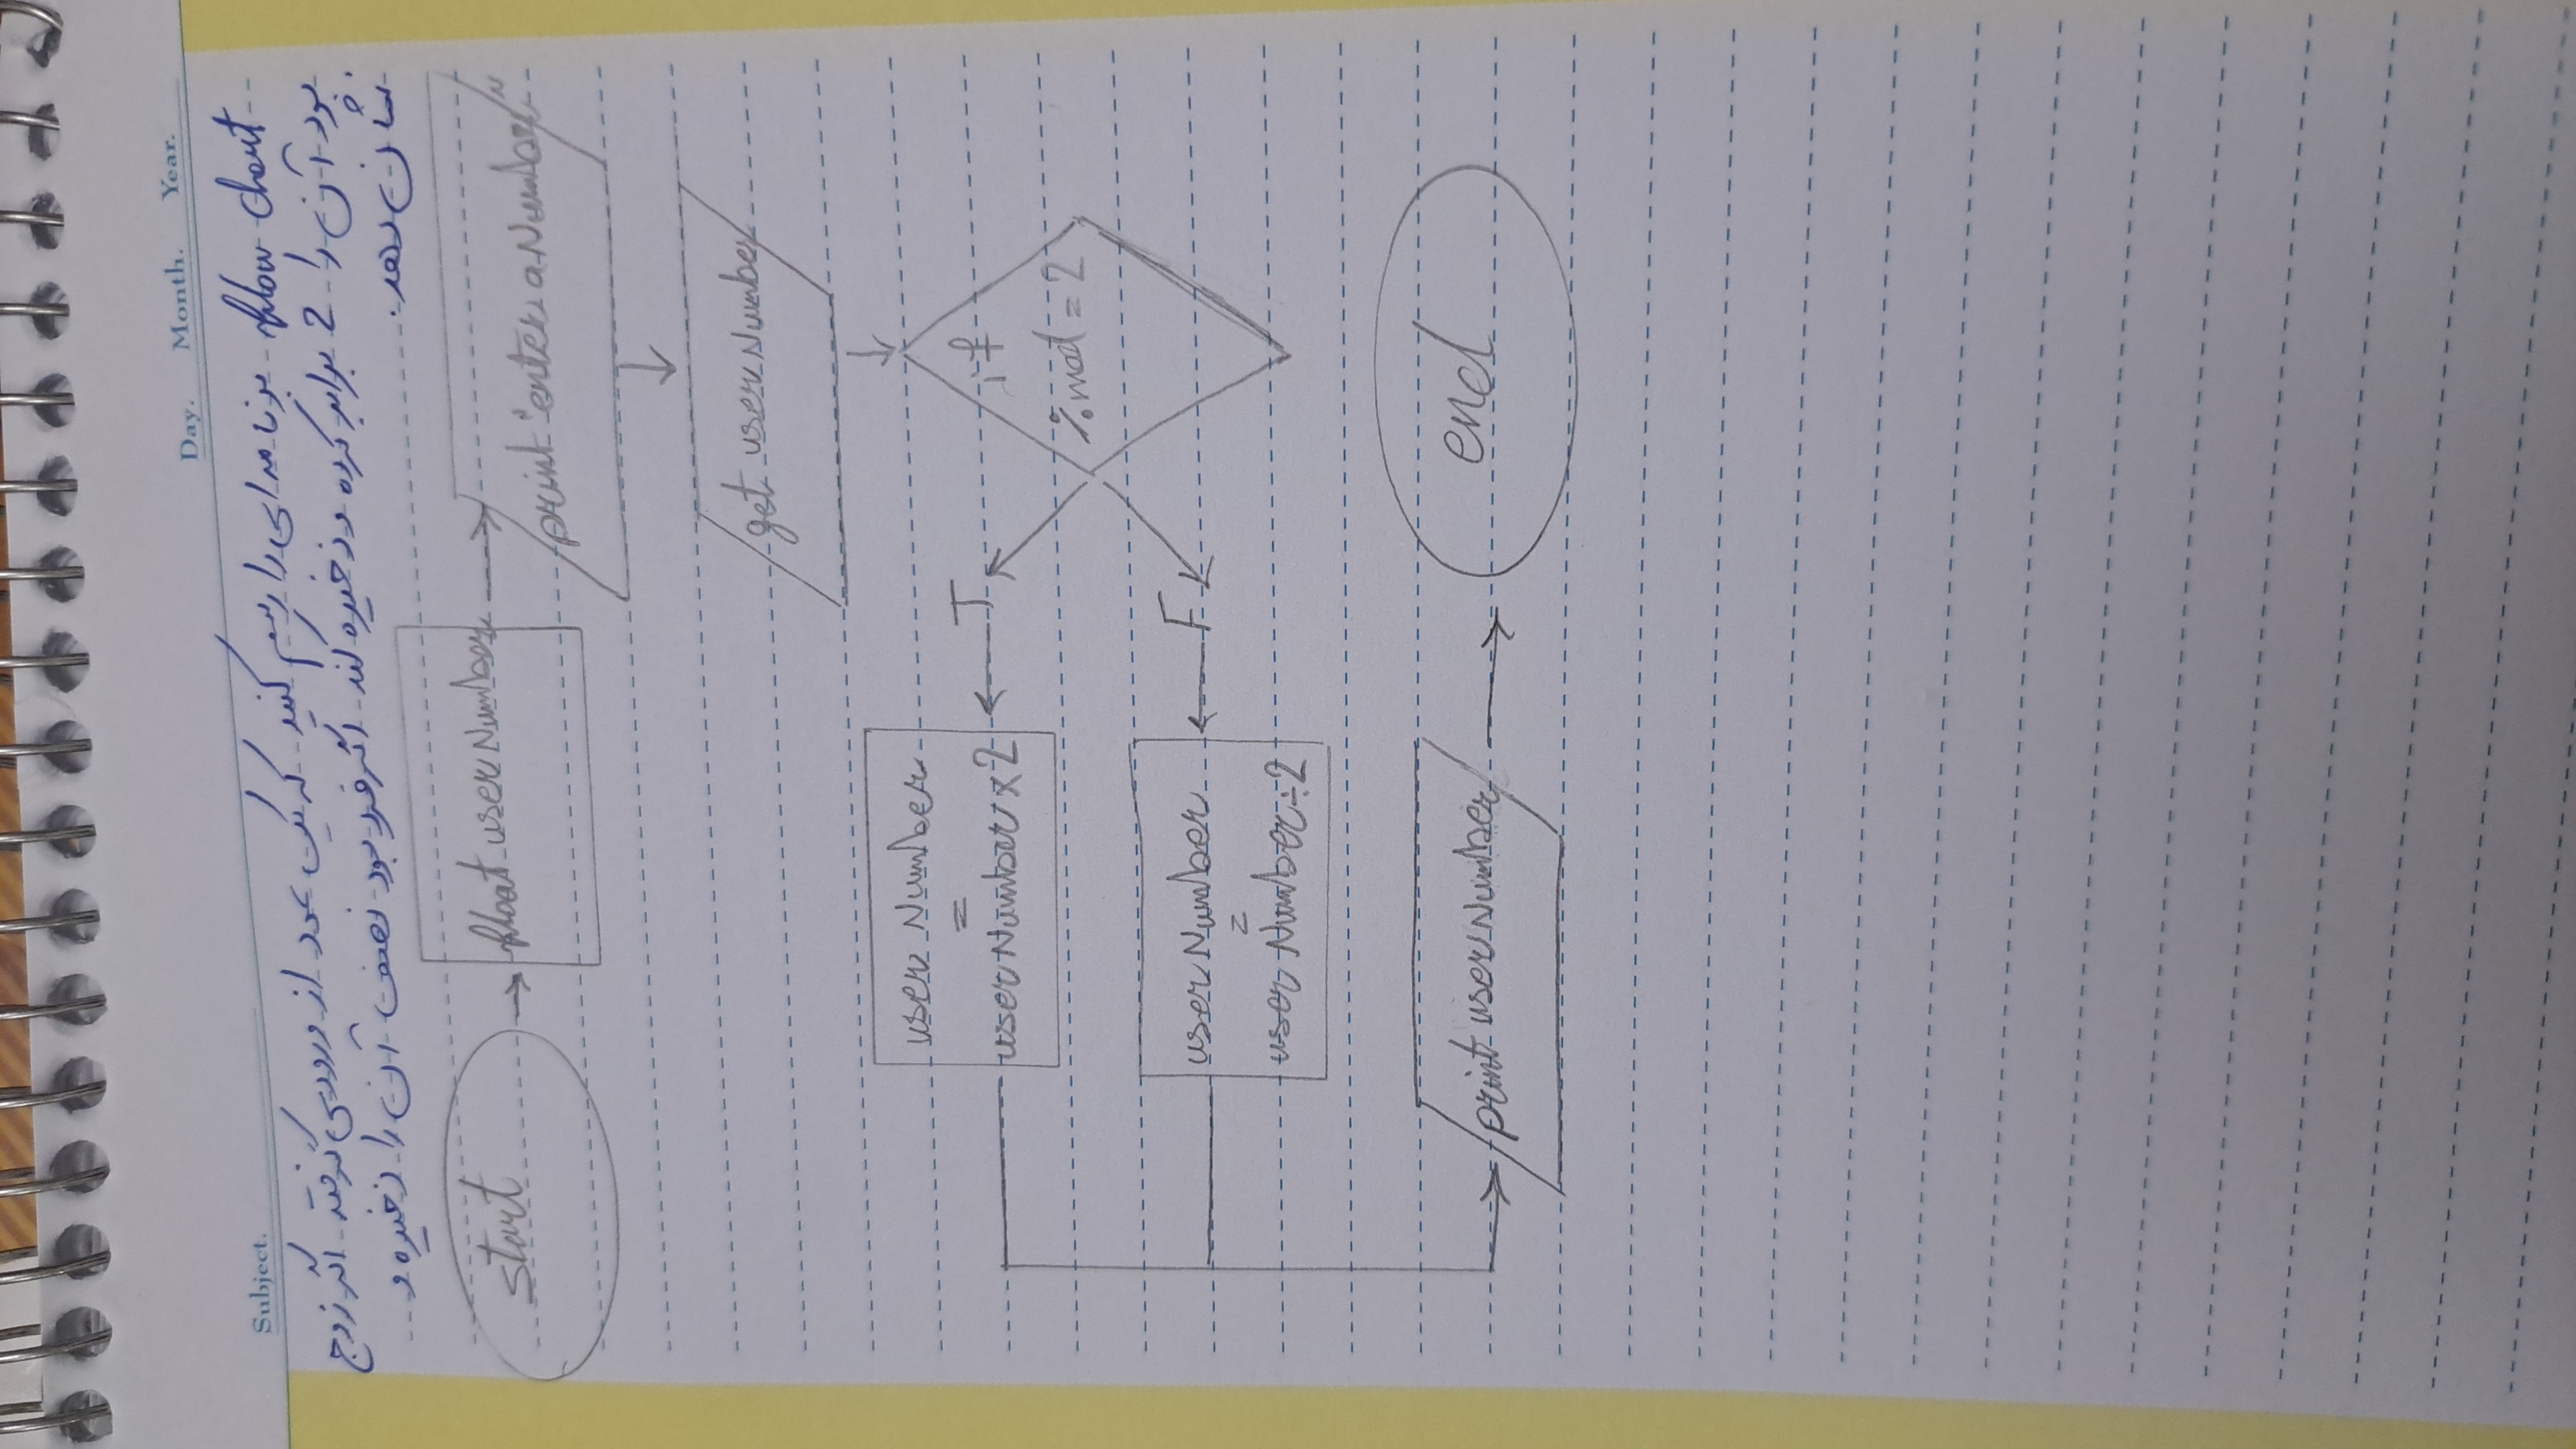 Day. Month. Year.
Subject.
flow chart برنامه ای را رسم کنید که یک عدد از ورودی گرفته اگر زوج
بود آن را 2 برابر کرده و ذخیره کند اگر فرد بود نصف آن را ذخیره و
نشان دهد.
start
float userNumber
print "enter a Number"
get userNumber
if
%mod = 2
T
user Number
=
userNumber × 2
F
userNumber
=
user Number ÷ 2
print userNumber
end